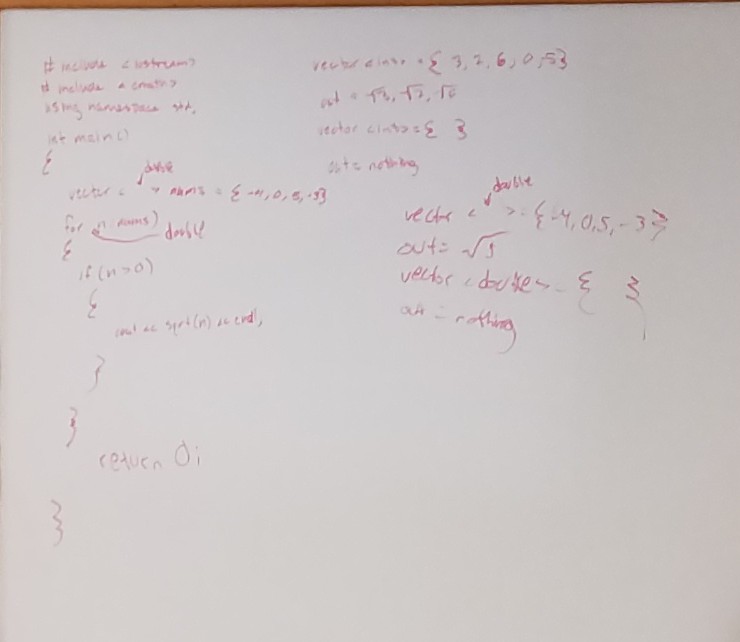 # include <iostream>
# include <cmath>
using namespace std,
int main()
{
double
vector < > nums = { -4, 0, 5, -3}
for n nums)
double
{
if (n > 0)
{
cout << sqrt(n) << endl,
}
}
return 0;
}
vector <int> = { 3, 2, 6, 0, 5}
out = √3, √2, √6
vector <int> = { }
out = nothing
double
vector < > = {-4, 0,5, -3}
out = √5
vector <double> = { }
out = nothing